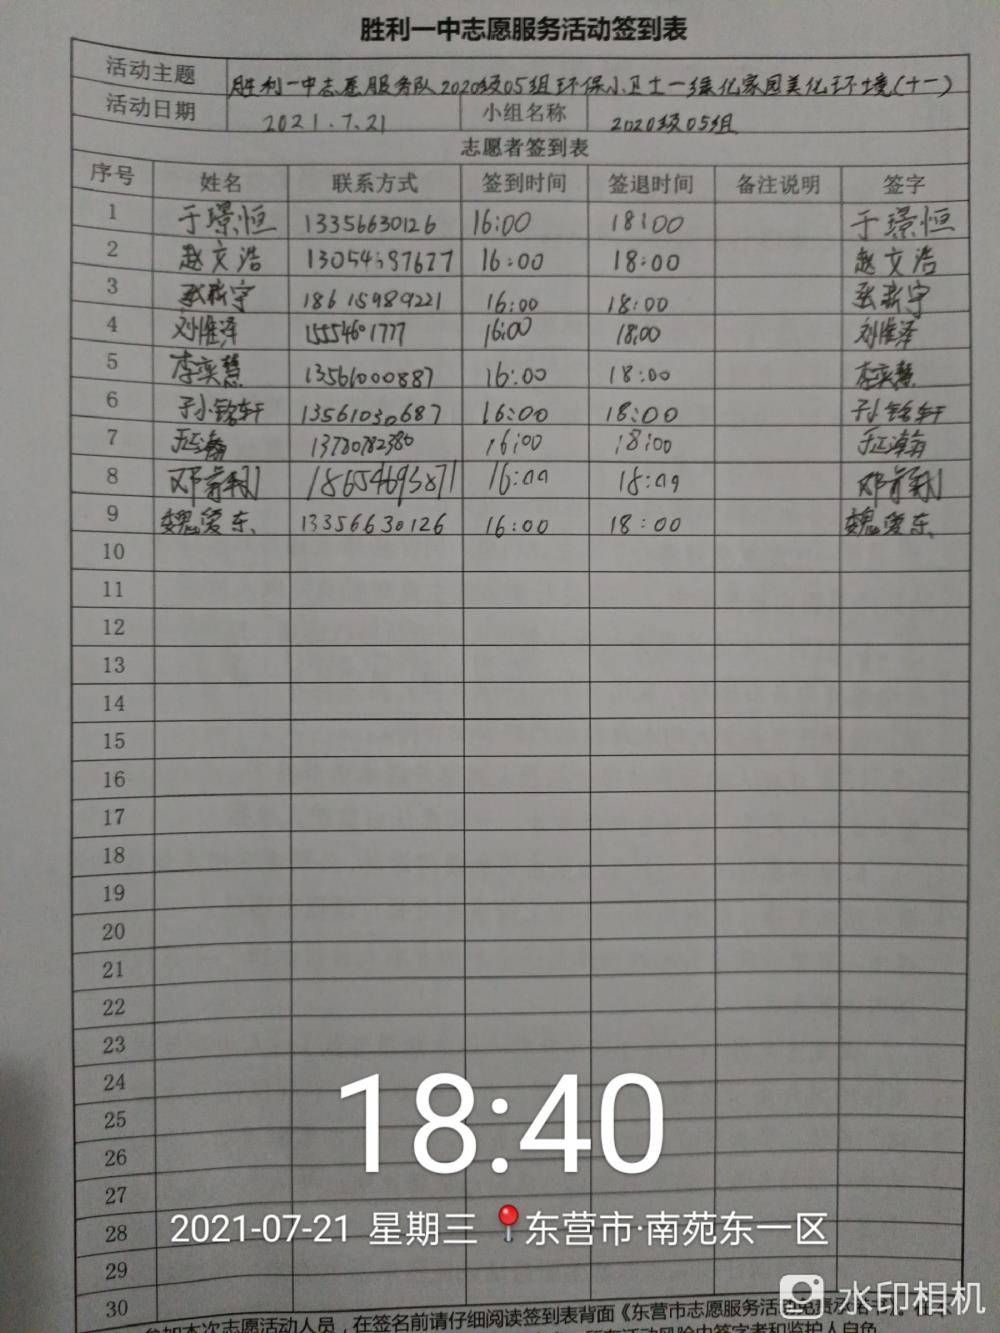 胜利一中志愿服务活动签到表
活动主题 胜利一中志愿服务队2020级05组环保小卫士—绿化家园美化环境(十一)
活动日期 2021.7.21 小组名称 2020级05组
志愿者签到表
序号 姓名 联系方式 签到时间 签退时间 备注说明 签字
1 于璟恒 13356630126 16:00 18:00 于璟恒
2 赵文浩 16:00 18:00 赵文浩
3 18615989221 16:00 18:00
4 刘惟泽 15554601777 16:00 18:00 刘惟泽
5 李奕慧 13561000887 16:00 18:00 李奕慧
6 孙铭轩 13561030687 16:00 18:00 孙铭轩
7 16:00 18:00
8 邓 16:00 18:00 邓
9 魏爱东 13356630126 16:00 18:00 魏爱东
10
11
12
13
14
15
16
17
18
19
20
21
22
23
24
18:40
25
26
27
28
2021-07-21 星期三 东营市·南苑东一区
29
30
水印相机
参加本次志愿活动人员，在签名前请仔细阅读签到表背面《东营市志愿服务活动免责